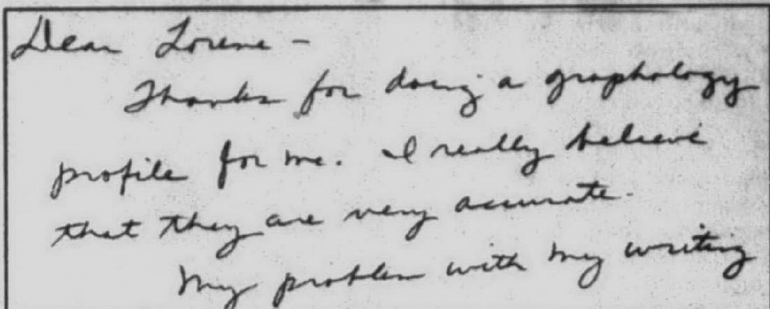 Dear Lorene -
Thanks for doing a graphology
profile for me. I really believe
that they are very accurate.
My problem with my writing